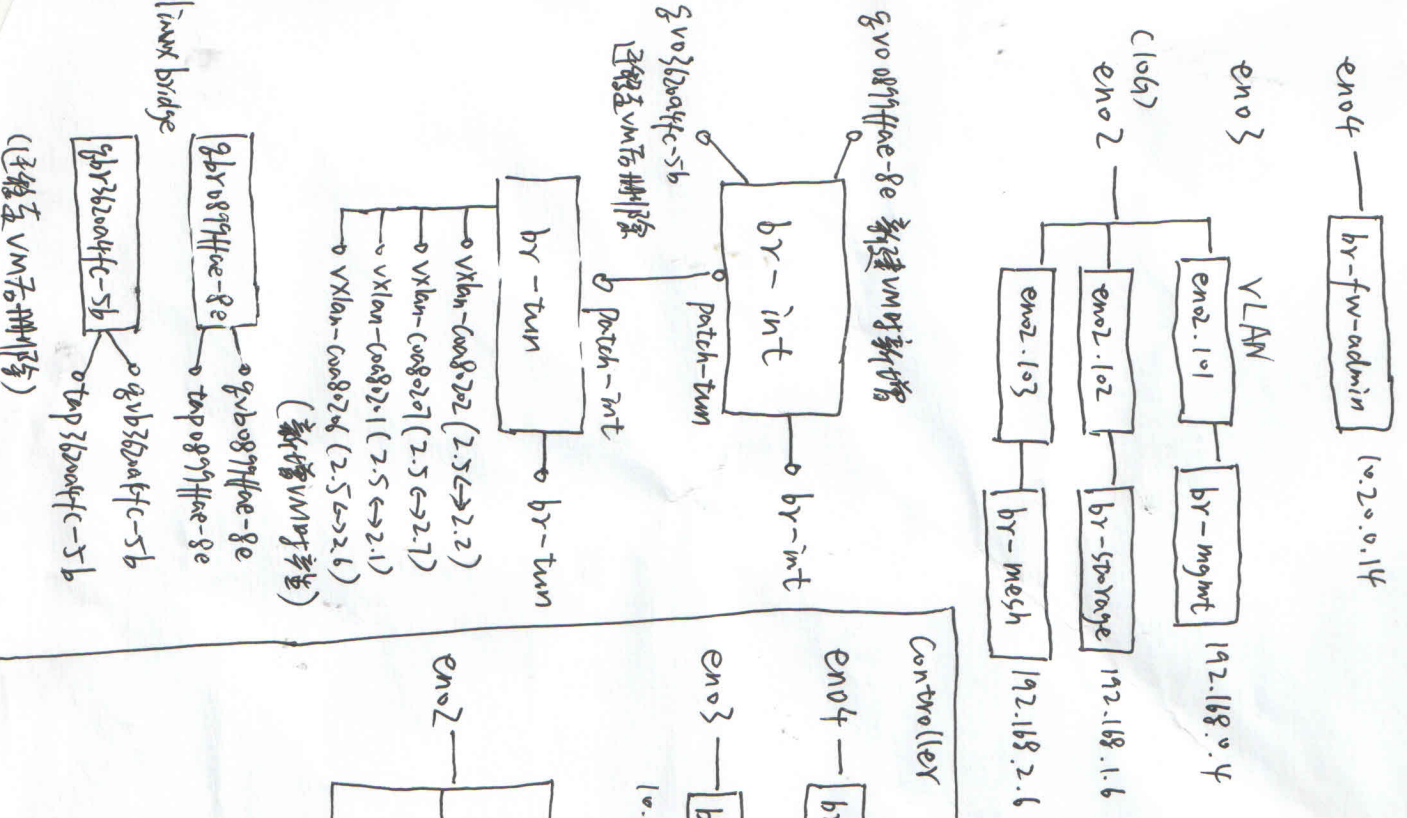 eno4
br-fw-admin
10.20.0.14
eno3
(10G)
eno2
VLAN
eno2.101
br-mgmt
192.168.0.4
eno2.102
br-storage
192.168.1.6
eno2.103
br-mesh
192.168.2.6
qvo0899ffae-8e 新建VM时新增
qvo3620a4fc-5b
迁移走VM后删除
br-int
br-int
patch-tun
patch-int
br-tun
br-tun
vxlan-c0a80202 (2.5↔2.2)
vxlan-c0a80207 (2.5↔2.7)
vxlan-c0a80201 (2.5↔2.1)
vxlan-c0a80206 (2.5↔2.6)
linux bridge
qbr0899ffae-8e
qvb0899ffae-8e
tap0899ffae-8e
qbr3620a4fc-5b
qvb3620a4fc-5b
tap3620a4fc-5b
(迁移走VM后删除)
Controller
eno4
eno3
eno2